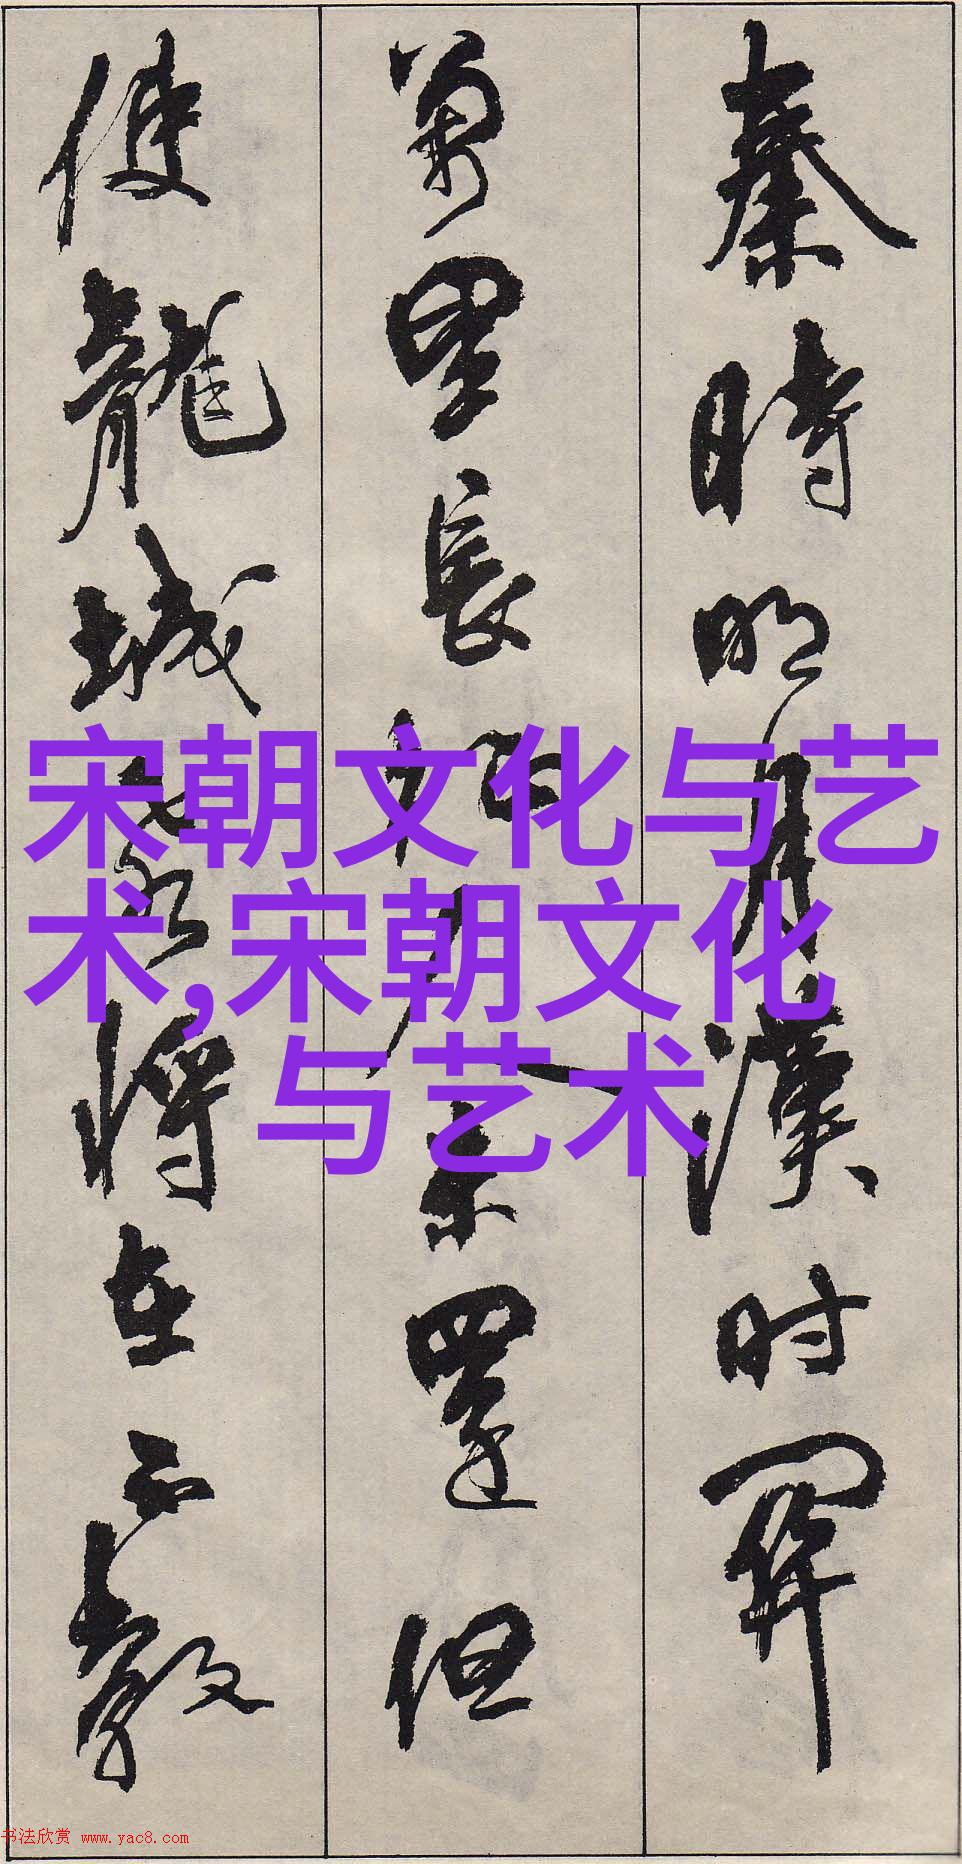 秦時明月漢时關
萬里長征人未還但
使龍城飛將在不教
宋朝文化与艺
术,宋朝文化
与艺术
书法欣赏 www.yac8.com